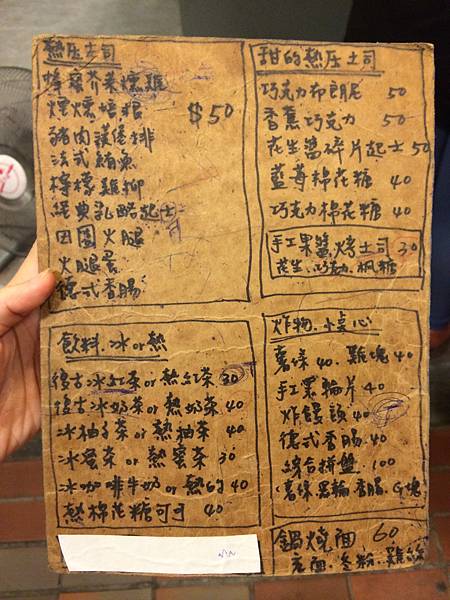 熱压吉司
蜂蜜芥茉燻雞
煙燻培根
$50
豬肉漢堡排
法式鮪魚
檸檬雞柳
經典乳酪起士
田園火腿
火腿蛋
德式香腸
甜的熱压土司
巧克力布朗尼 50
香蕉巧克力 50
花生醬碎片起士 50
藍莓棉花糖 40
巧克力棉花糖 40
手工果醬烤土司 30
花生、巧克力、楓糖
飲料、冰or熱
復古冰紅茶or熱紅茶 30
復古冰奶茶or熱奶茶 40
冰柚子茶or熱柚茶 40
冰蜜茶or熱蜜茶 30
冰咖啡牛奶or熱的 40
熱棉花糖可可 40
炸物、點心
薯條40、雞塊40
手工黑輪片 40
炸饅頭 40
德式香腸、40
綜合拼盤 100
(薯條、黑輪、香腸、G塊)
鍋燒面 60
意面、冬粉、雞絲